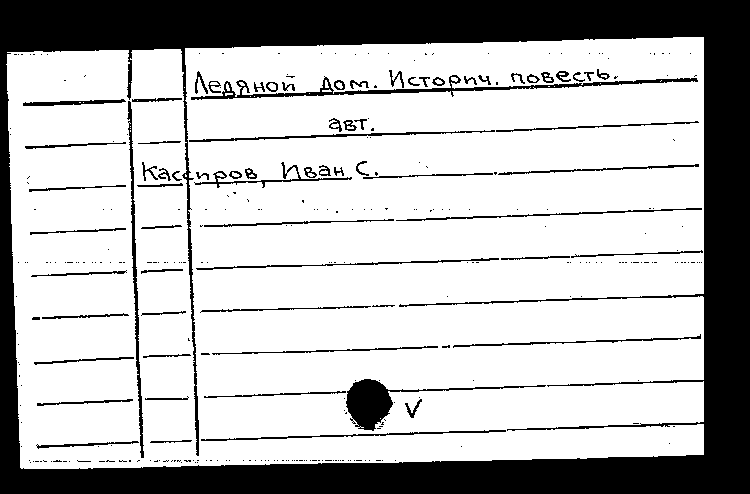 Ледяной дом. Историч. повесть.
авт.
Кассиров, Иван С.
V